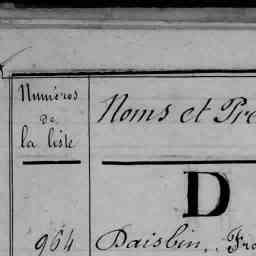 Numéros
de
la liste
Noms et Pré
D
964 Daisbin, Fra